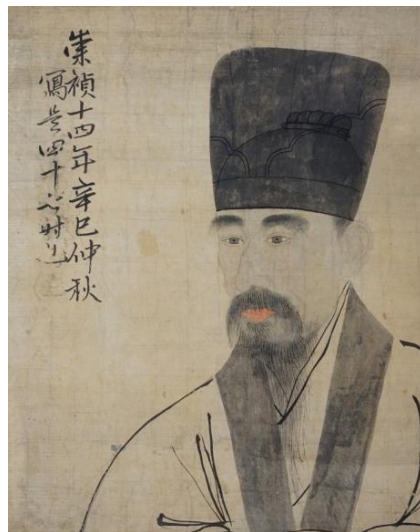 崇禎十四年辛巳仲秋
寫四十時